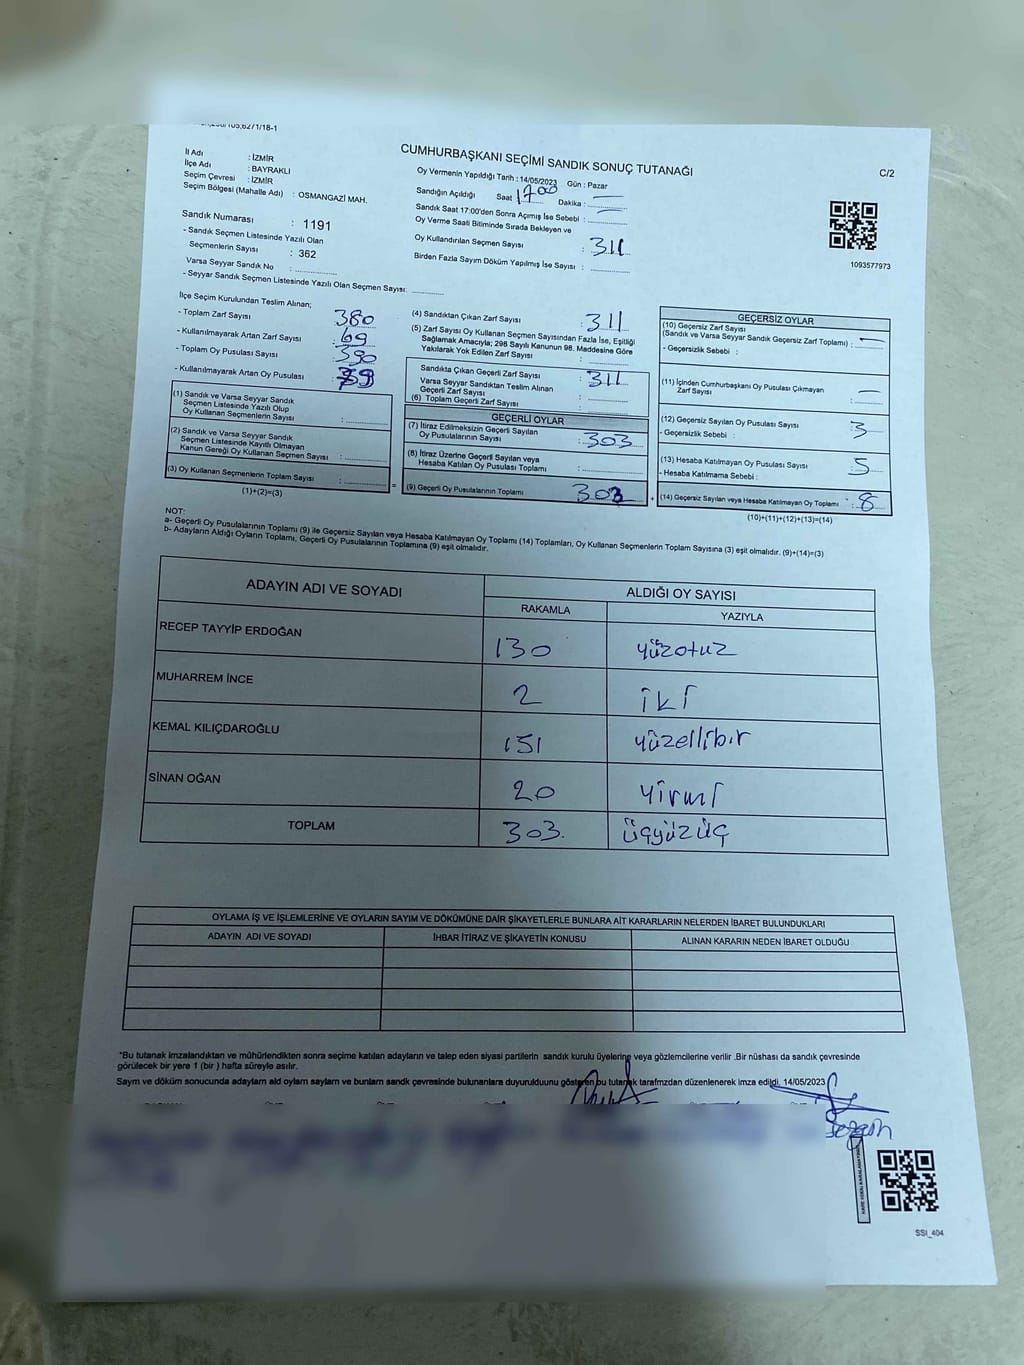 CUMHURBAŞKANI SEÇİMİ SANDIK SONUÇ TUTANAĞI
C/2
İl Adı : İZMİR
İlçe Adı : BAYRAKLI
Seçim Çevresi : İZMİR
Seçim Bölgesi (Mahalle Adı) : OSMANGAZİ MAH.
Sandık Numarası : 1191
- Sandık Seçmen Listesinde Yazılı Olan
Seçmenlerin Sayısı : 362
Varsa Seyyar Sandık No :
- Seyyar Sandık Seçmen Listesinde Yazılı Olan Seçmen Sayısı:
Oy Vermenin Yapıldığı Tarih : 14/05/2023 Gün : Pazar
Sandığın Açıldığı Saat 17:00 Dakika :
Sandık Saat 17:00'den Sonra Açımış İse Sebebi :
Oy Verme Saati Bitiminde Sırada Bekleyen ve
Oy Kullandırılan Seçmen Sayısı : 311
Birden Fazla Sayım Döküm Yapılmış İse Sayısı :
1093577973
İlçe Seçim Kurulundan Teslim Alınan;
- Toplam Zarf Sayısı : 380
- Kullanılmayarak Artan Zarf Sayısı : 69
- Toplam Oy Pusulası Sayısı :
- Kullanılmayarak Artan Oy Pusulası :
(1) Sandık ve Varsa Seyyar Sandık
Seçmen Listesinde Yazılı Olup
Oy Kullanan Seçmenlerin Sayısı :
(2) Sandık ve Varsa Seyyar Sandık
Seçmen Listesinde Kayıtlı Olmayan
Kanun Gereği Oy Kullanan Seçmen Sayısı :
(3) Oy Kullanan Seçmenlerin Toplam Sayısı :
(1)+(2)=(3)
(4) Sandıktan Çıkan Zarf Sayısı : 311
(5) Zarf Sayısı Oy Kullanan Seçmen Sayısından Fazla İse, Eşitliği
Sağlamak Amacıyla; 298 Sayılı Kanunun 98. Maddesine Göre
Yakılarak Yok Edilen Zarf Sayısı :
Sandıkta Çıkan Geçerli Zarf Sayısı : 311
Varsa Seyyar Sandıktan Teslim Alınan
Geçerli Zarf Sayısı :
(6) Toplam Geçerli Zarf Sayısı :
GEÇERLİ OYLAR
(7) İtiraz Edilmeksizin Geçerli Sayılan
Oy Pusulalarının Sayısı : 303
(8) İtiraz Üzerine Geçerli Sayılan veya
Hesaba Katılan Oy Pusulası Toplamı :
(9) Geçerli Oy Pusulalarının Toplamı 303
GEÇERSİZ OYLAR
(10) Geçersiz Zarf Sayısı
(Sandık ve Varsa Seyyar Sandık Geçersiz Zarf Toplamı) :
- Geçersizlik Sebebi :
(11) İçinden Cumhurbaşkanı Oy Pusulası Çıkmayan
Zarf Sayısı :
(12) Geçersiz Sayılan Oy Pusulası Sayısı : 3
- Geçersizlik Sebebi :
(13) Hesaba Katılmayan Oy Pusulası Sayısı : 5
- Hesaba Katılmama Sebebi :
(14) Geçersiz Sayılan veya Hesaba Katılmayan Oy Toplamı : 8
(10)+(11)+(12)+(13)=(14)
NOT:
a- Geçerli Oy Pusulalarının Toplamı (9) ile Geçersiz Sayılan veya Hesaba Katılmayan Oy Toplamı (14) Toplamları, Oy Kullanan Seçmenlerin Toplam Sayısına (3) eşit olmalıdır. (9)+(14)=(3)
b- Adayların Aldığı Oyların Toplamı, Geçerli Oy Pusulalarının Toplamına (9) eşit olmalıdır.
ADAYIN ADI VE SOYADI ALDIĞI OY SAYISI
RAKAMLA YAZIYLA
RECEP TAYYİP ERDOĞAN 130 yüzotuz
MUHARREM İNCE 2 iki
KEMAL KILIÇDAROĞLU 151 yüzellibir
SİNAN OĞAN 20 yirmi
TOPLAM 303 üçyüzüç
OYLAMA İŞ VE İŞLEMLERİNE VE OYLARIN SAYIM VE DÖKÜMÜNE DAİR ŞİKAYETLERLE BUNLARA AİT KARARLARIN NELERDEN İBARET BULUNDUKLARI
ADAYIN ADI VE SOYADI İHBAR İTİRAZ VE ŞİKAYETİN KONUSU ALINAN KARARIN NEDEN İBARET OLDUĞU
"Bu tutanak imzalandıktan ve mühürlendikten sonra seçime katılan adayların ve talep eden siyasi partilerin sandık kurulu üyelerine veya gözlemcilerine verilir .Bir nüshası da sandık çevresinde
görülecek bir yere 1 (bir ) hafta süreyle asılır.
Sayım ve döküm sonucunda adayların ald oyların sayların ve bunların sandk çevresinde bulunanlara duyurulduunu gösteren bu tutanak tarafmzdan düzenlenerek imza edildi. 14/05/2023
Sezgin
SSI_404